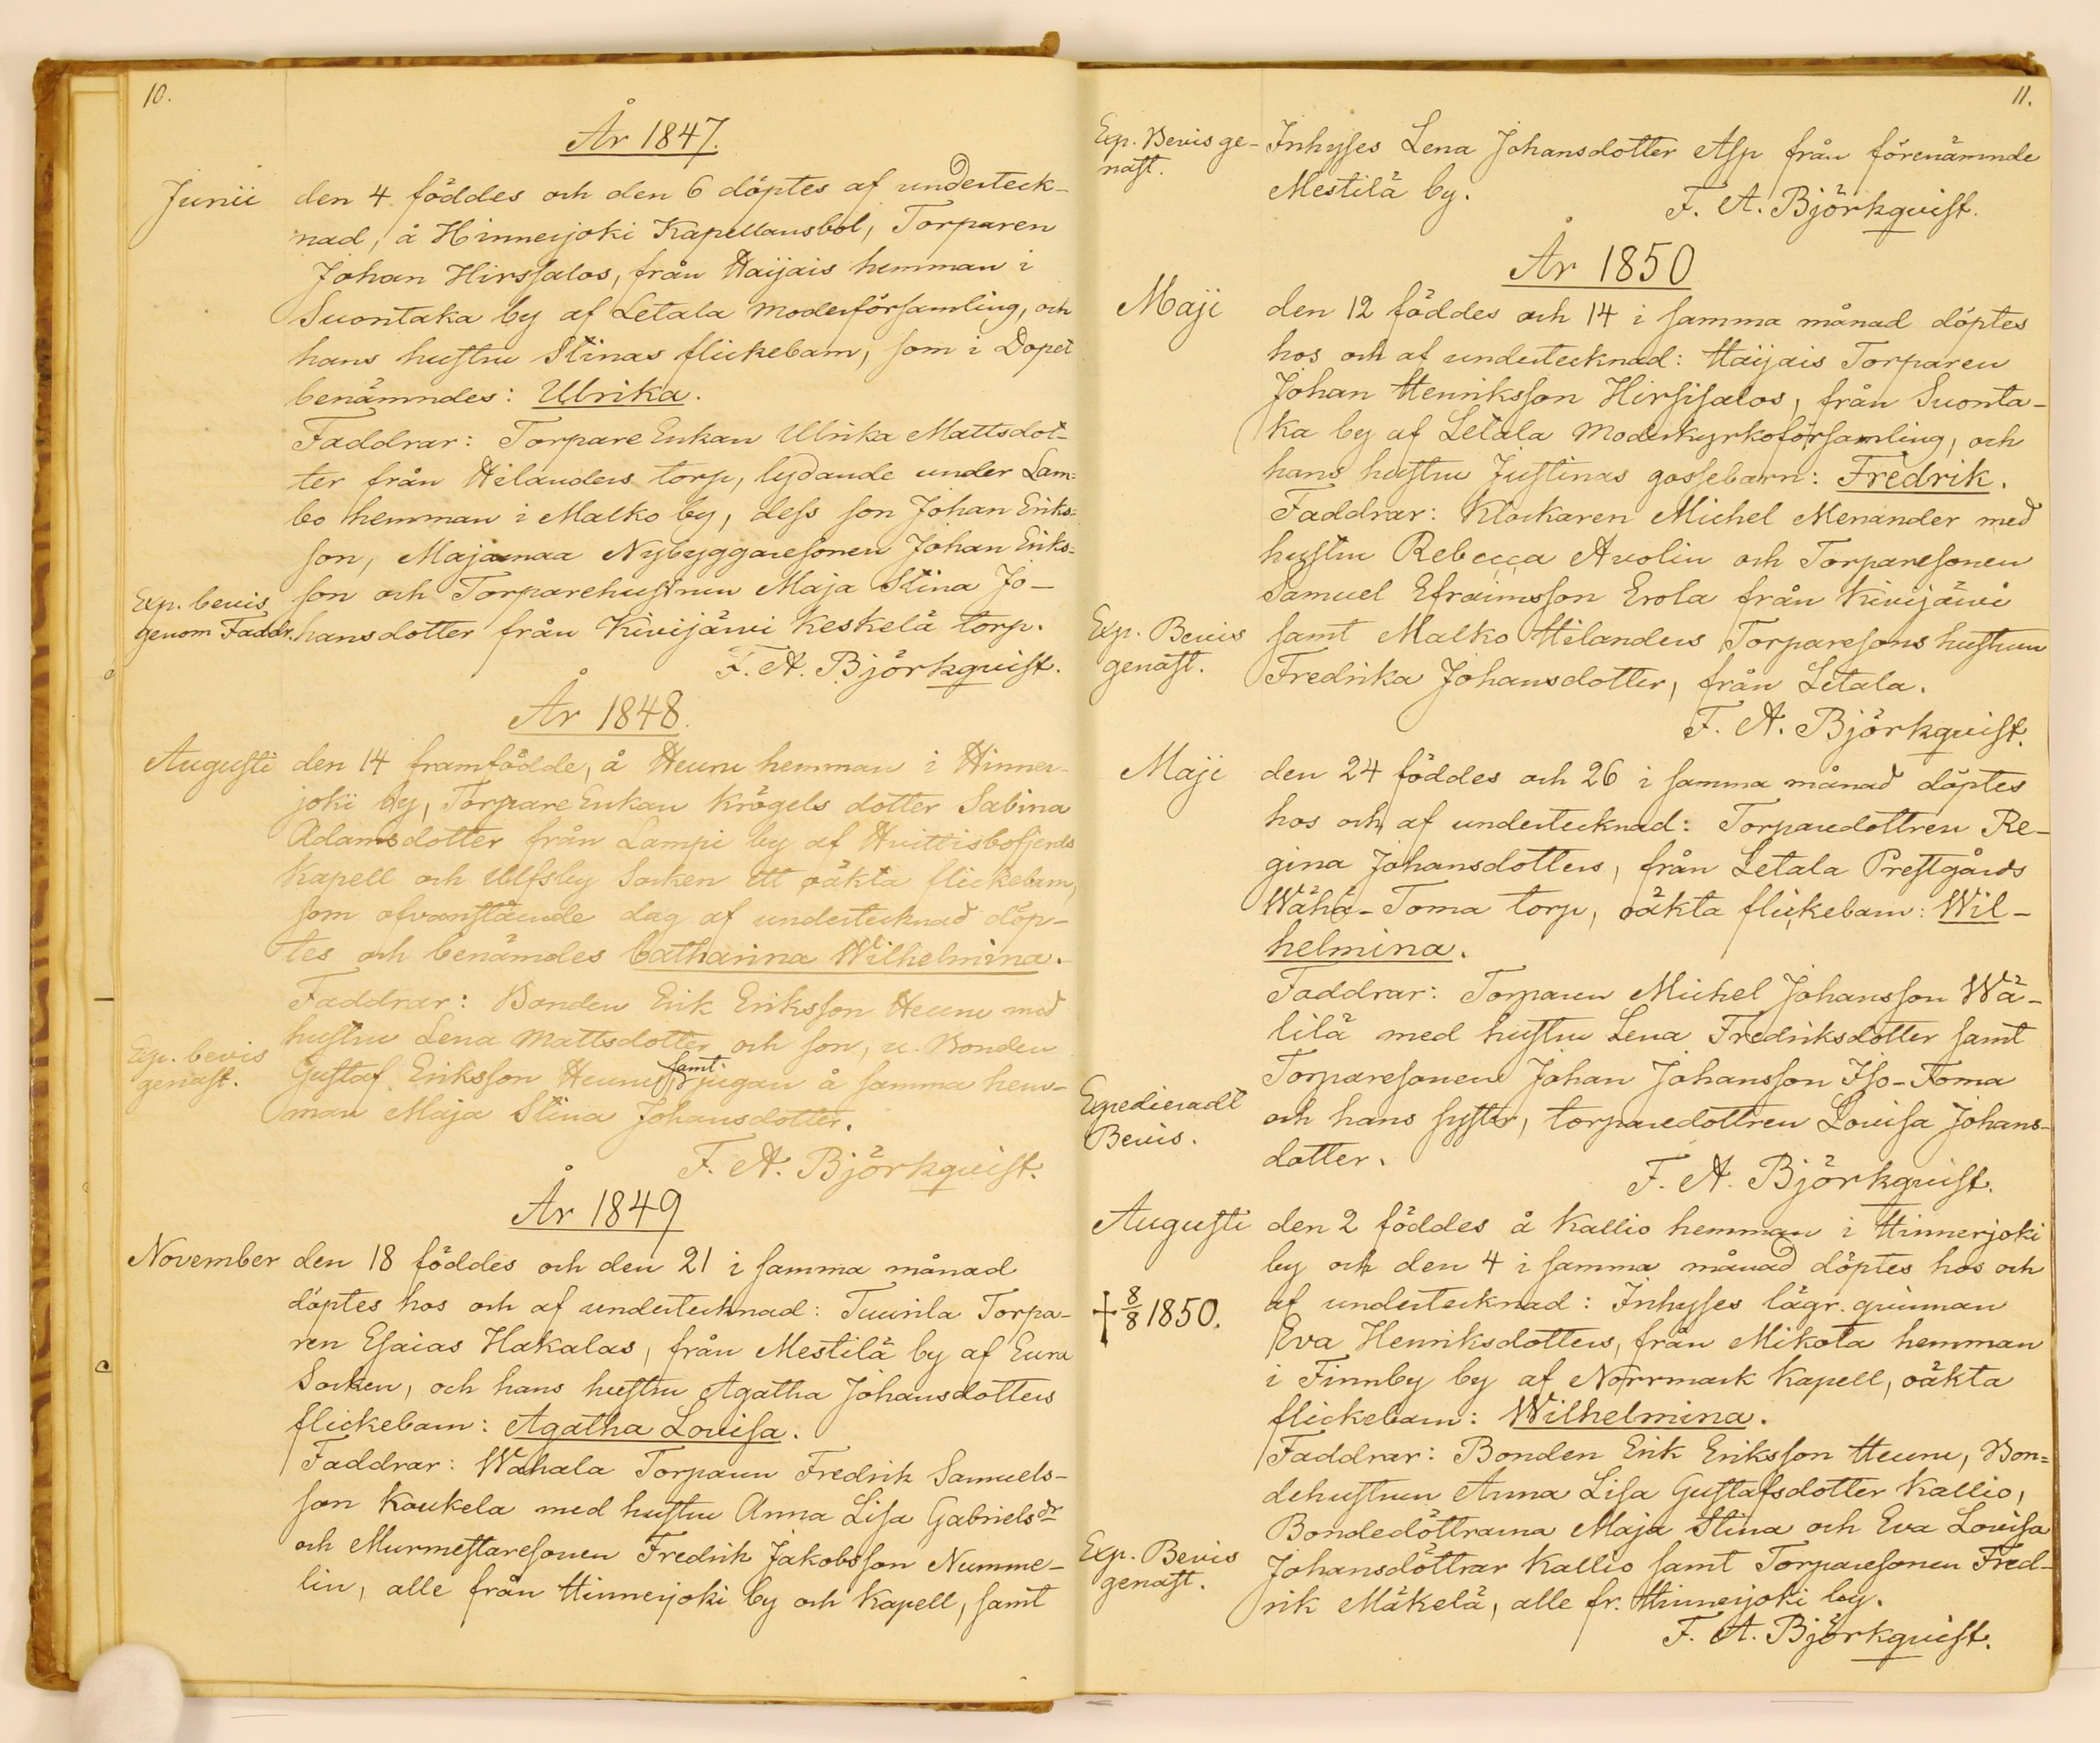 10.
År 1847.
Junii den 4 föddes och den 6 döptes af underteck-
nad, å Hinnerjoki Kapellansbol, Torparen
Johan Hirssalos, från Haijais hemman i
Suontaka by af Letala Moderförsamling, och
hans hustru Stinas flickebarn, som i Dopet
benämndes: Ulrika.
Faddrar: Torpare Enkan Ulrika Mattsdot-
ter från Hilanders torp, lydande under Lam-
bo hemman i Malko by, dess son Johan Eriks-
son, Majamaa Nybyggaresonen Johan Eriks-
son och Torparehustrun Maja Stina Jo-
hansdotter från Kivijärvi Keskelä torp.
Exp. bevis
genom Faddr.
F. A. Björkqvist.
År 1848.
Augusti den 14 framfödde, å Heunu hemman i Hinner-
joki by, Torpare Enkan Krögels dotter Sabina
Adamsdotter från Lampi by af Hvittisbofjerds
Kapell och Ulfsby Socken ett oäkta flickebarn,
som ofvanstående dag af undertecknad döp-
tes och benämdes Catharina Wilhelmina.
Faddrar: Bonden Erik Eriksson Heunu med
hustru Lena Mattsdotter och son, u. Bonden
Gustaf Eriksson Heunu samt pigan å samma hem-
man Maja Stina Johansdotter.
Exp. bevis
genast.
F. A. Björkqvist.
År 1849
November den 18 föddes och den 21 i samma månad
döptes hos och af undertecknad: Tuurila Torpa-
ren Esaias Hakalas, från Mestilä by af Eura
Socken, och hans hustru Agatha Johansdotters
flickebarn: Agatha Lovisa.
Faddrar: Wahala Torparen Fredrik Samuels-
son Koukela med hustru Anna Lisa Gabrielsdr
och Murmestaresonen Fredrik Jakobsson Numme-
lin, alle från Hinnerjoki by och Kapell, samt
11.
Exp. Bevis ge-
nast.
Inhyses Lena Johansdotter Asp från förenämnde
Mestilä by.
F. A. Björkqvist.
År 1850
Maji den 12 föddes och 14 i samma månad döptes
hos och af undertecknad: Haijais Torparen
Johan Henriksson Hirsisalos, från Suonta-
ka by af Letala Moderkyrkoförsamling, och
hans hustru Justinas gossebarn: Fredrik.
Faddrar: Klockaren Michel Menander med
hustru Rebecca Avolin och Torparesonen
Samuel Efraimsson Erola från Kivijärvi
samt Malko Hilanders Torparesons hustrun
Fredrika Johansdotter, från Letala.
Exp. Bevis
genast.
F. A. Björkqvist.
Maji den 24 föddes och 26 i samma månad döptes
hos och af undertecknad: Torparedottren Re-
gina Johansdotters, från Letala Prestgårds
Wähä-Toma torp, oäkta flickebarn: Wil-
helmina.
Faddrar: Torparen Michel Johansson Wä-
lilä med hustru Lena Fredriksdotter samt
Torparesonen Johan Johansson Iso-Toma
och hans syster, torparedottren Lovisa Johans-
dotter.
Expedieradt
Bevis.
F. A. Björkqvist.
Augusti den 2 föddes å Kallio hemman i Hinnerjoki
by och den 4 i samma månad döptes hos och
af undertecknad: Inhyses lägr. quinnan
Eva Henriksdotters, från Mikola hemman
i Finnby by af Norrmark Kapell, oäkta
flickebarn: Wilhelmina.
† 8/8 1850.
Faddrar: Bonden Erik Eriksson Heunu, Bon-
dehustrun Anna Lisa Gustafsdotter Kallio,
Bondedöttrarna Maja Stina och Eva Lovisa
Johansdöttrar Kallio samt Torparesonen Fred-
rik Mäkelä, alle fr. Hinnerjoki by.
Exp. Bevis
genast.
F. A. Björkqvist.